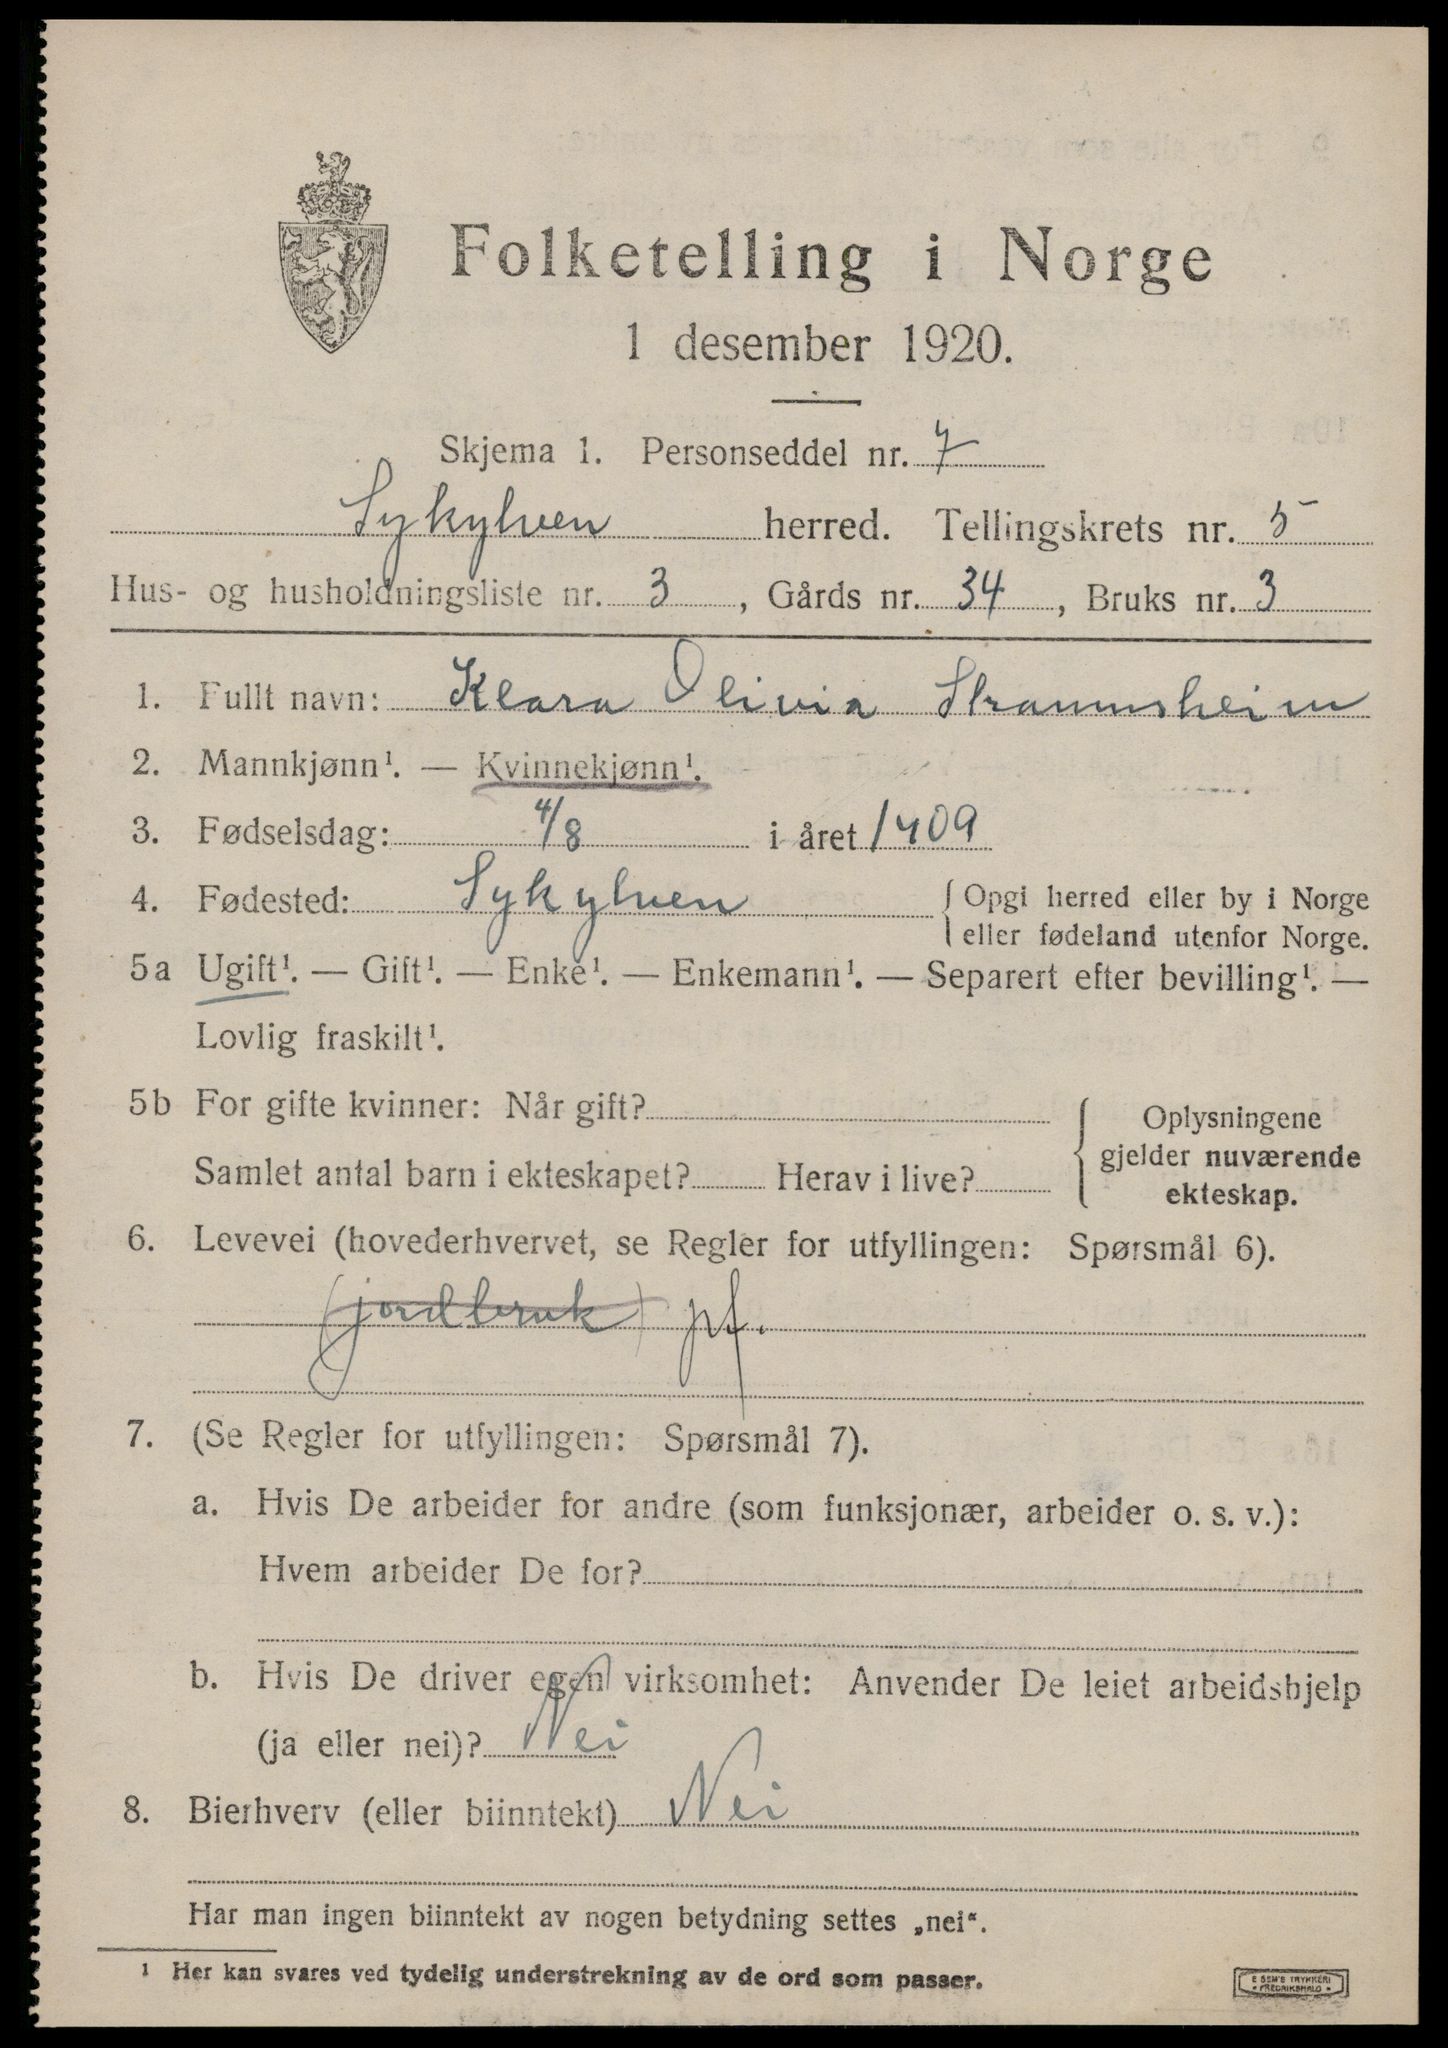 Folketelling i Norge
1 desember 1920.
Skjema 1. Personseddel nr. 7
Sykylven herred. Tellingskrets nr. 5
Hus- og husholdningsliste nr. 3, Gårds nr. 34, Bruks nr. 3
1. Fullt navn: Klara Olivia Straumsheim
2. Mannkjønn¹. — Kvinnekjønn¹.
3. Fødselsdag: 4/8 i året 1909
4. Fødested: Sykylven { Opgi herred eller by i Norge
eller fødeland utenfor Norge.
5a Ugift¹. — Gift¹. — Enke¹. — Enkemann¹. — Separert efter bevilling¹. —
Lovlig fraskilt¹.
5b For gifte kvinner: Når gift?
Samlet antal barn i ekteskapet? Herav i live?
Oplysningene
gjelder nuværende
ekteskap.
6. Levevei (hovederhvervet, se Regler for utfyllingen: Spørsmål 6).
(jordbruk) pf.
7. (Se Regler for utfyllingen: Spørsmål 7).
a. Hvis De arbeider for andre (som funksjonær, arbeider o. s. v.):
Hvem arbeider De for?
b. Hvis De driver egen virksomhet: Anvender De leiet arbeidshjelp
(ja eller nei)? Nei
8. Bierhverv (eller biinntekt) Nei
Har man ingen biinntekt av nogen betydning settes „nei“.
¹ Her kan svares ved tydelig understrekning av de ord som passer.
E SEM'S TRYKKERI
FREDRIKSHALD